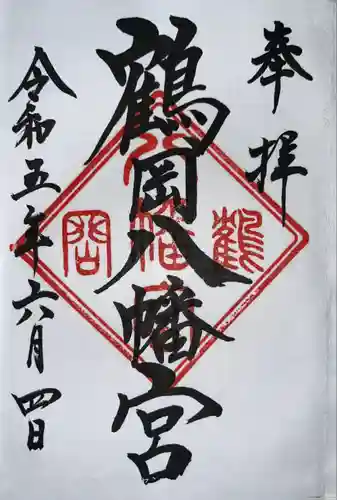 奉拝
鶴岡八幡宮
令和五年六月四日